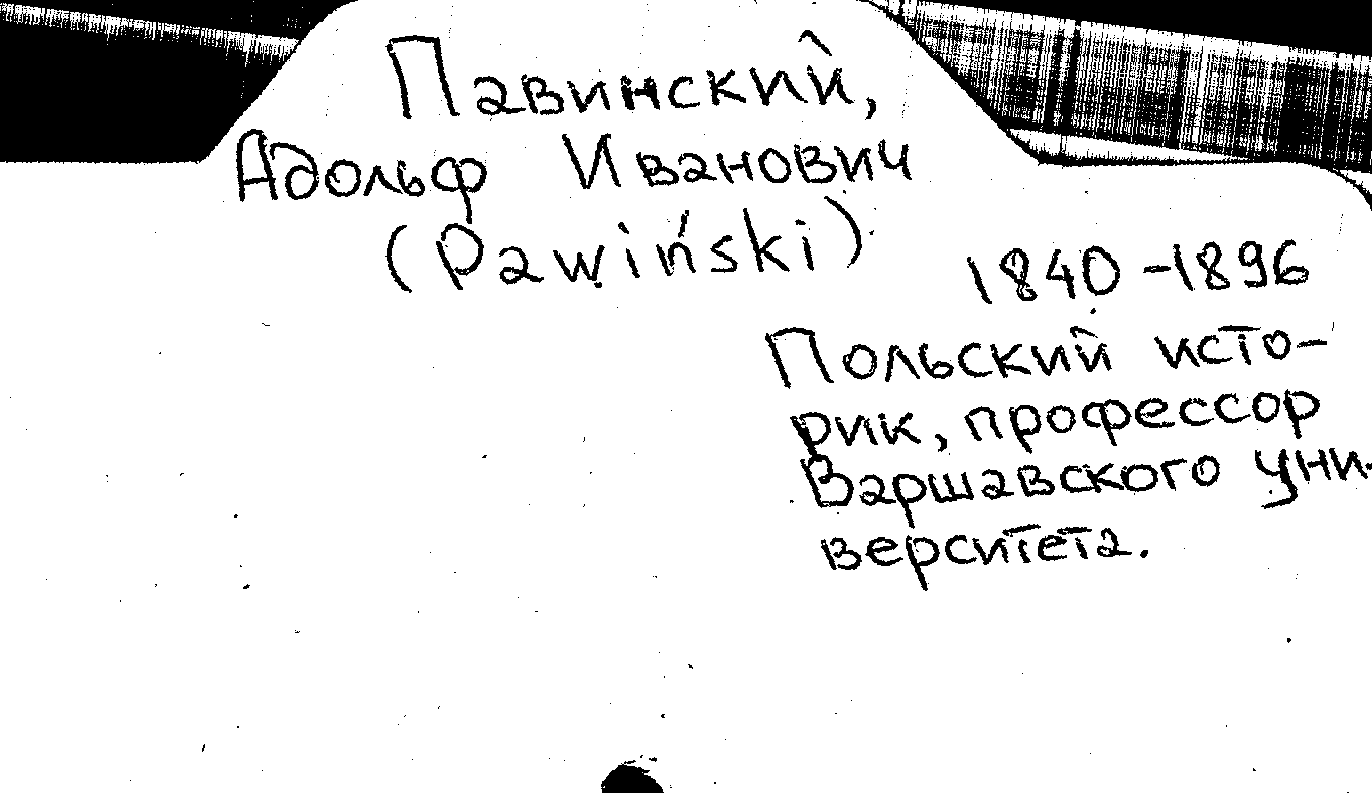 Павинский,
Адольф Иванович
(Pawiński)
1840-1896
Польский исто-
рик, профессор
Варшавского уни-
верситета.